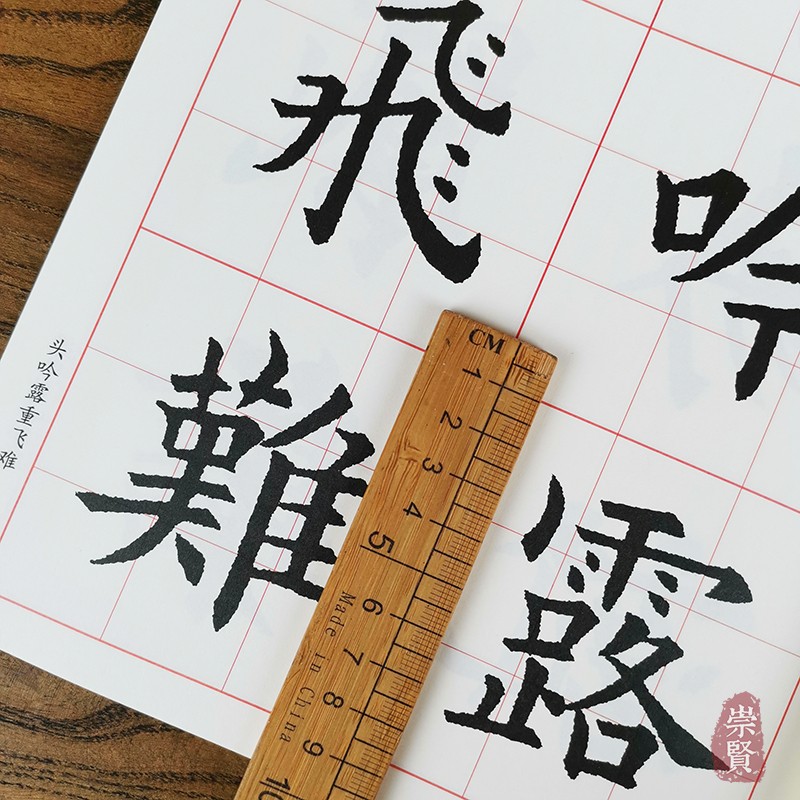 吟
露
飛
難
头吟露重飞难
CM
1 2 3 4 5 6 7 8 9 10
Made in China
崇賢